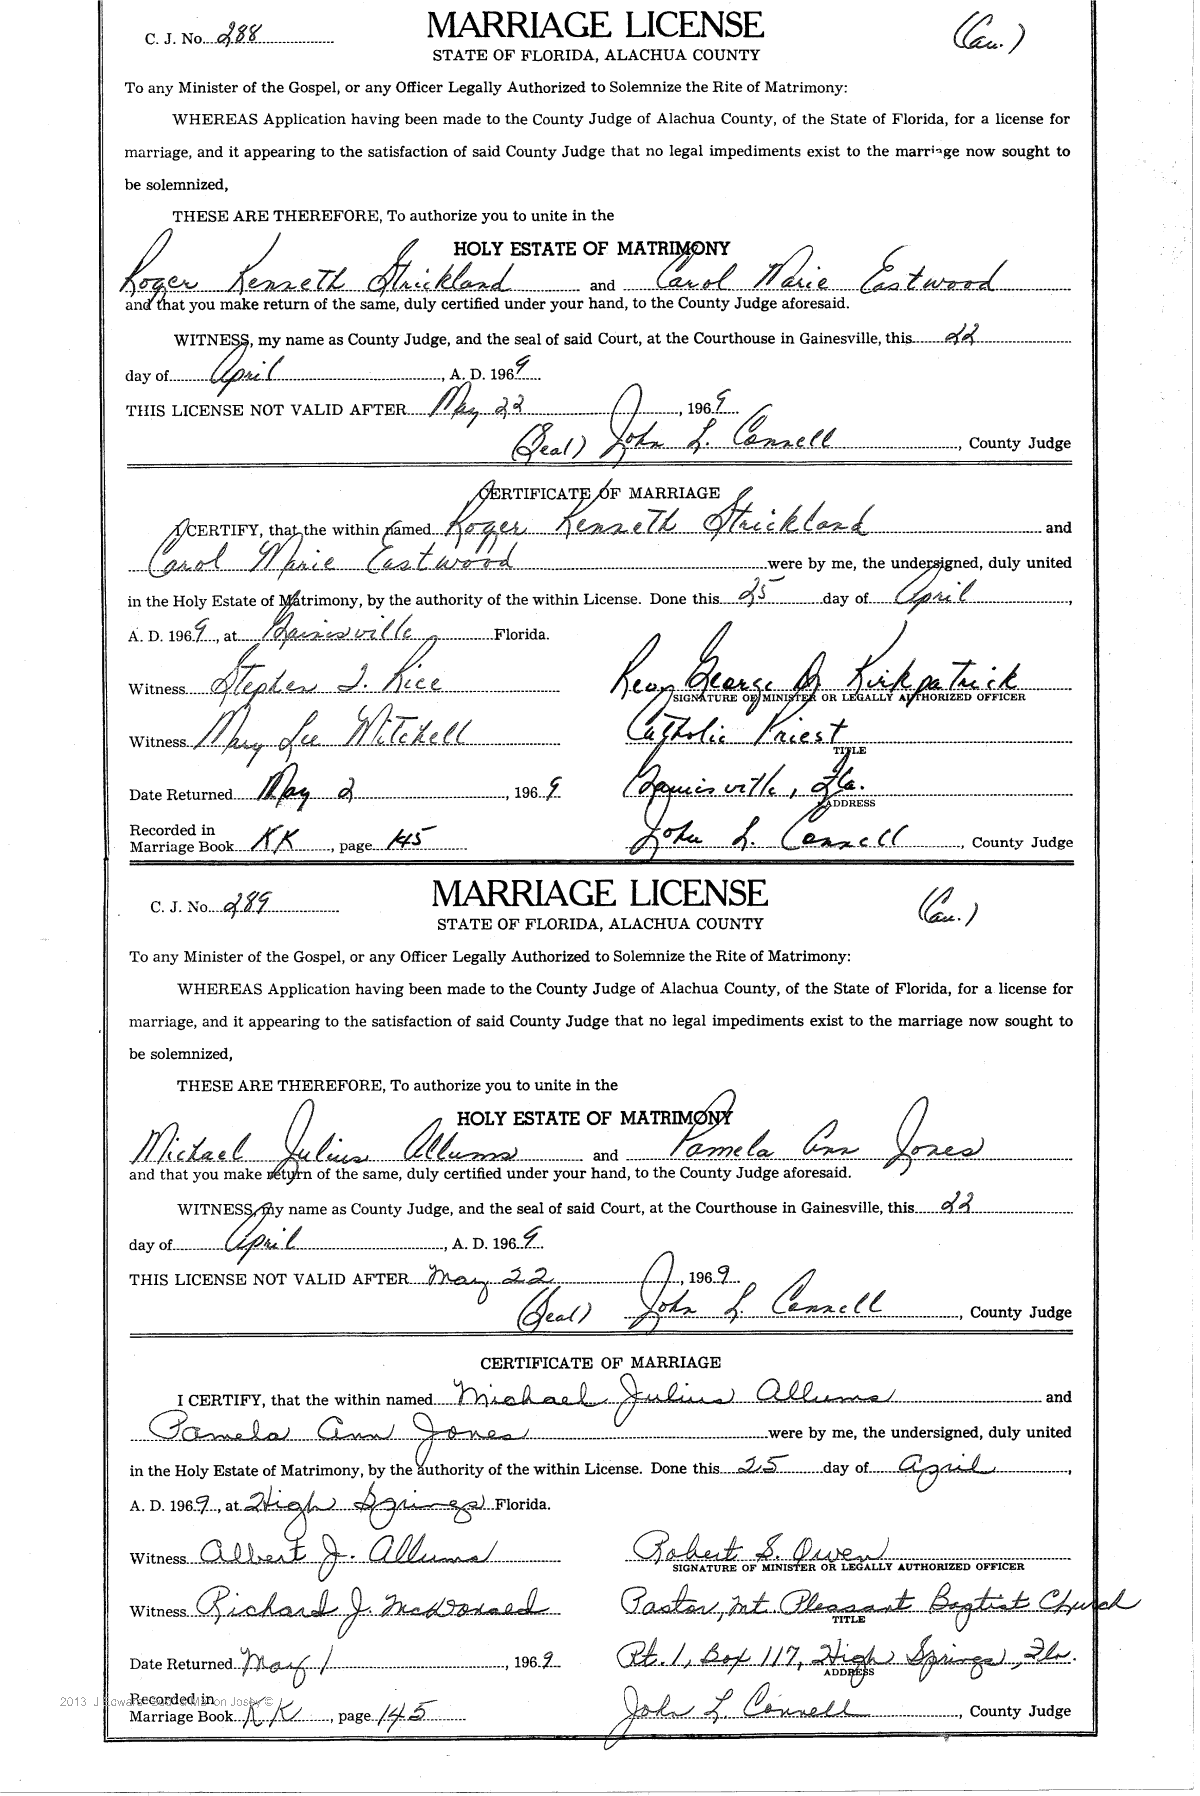 C. J. No. 288
MARRIAGE LICENSE
(Cau.)
STATE OF FLORIDA, ALACHUA COUNTY
To any Minister of the Gospel, or any Officer Legally Authorized to Solemnize the Rite of Matrimony:
WHEREAS Application having been made to the County Judge of Alachua County, of the State of Florida, for a license for
marriage, and it appearing to the satisfaction of said County Judge that no legal impediments exist to the marriage now sought to
be solemnized,
THESE ARE THEREFORE, To authorize you to unite in the
HOLY ESTATE OF MATRIMONY
Roger Kenneth Strickland and Carol Marie Eastwood
and that you make return of the same, duly certified under your hand, to the County Judge aforesaid.
WITNESS, my name as County Judge, and the seal of said Court, at the Courthouse in Gainesville, this 22
day of April, A. D. 1969
THIS LICENSE NOT VALID AFTER May 22, 1969
(Seal) John L. Connell, County Judge
CERTIFICATE OF MARRIAGE
I CERTIFY, that the within named Roger Kenneth Strickland and
Carol Marie Eastwood were by me, the undersigned, duly united
in the Holy Estate of Matrimony, by the authority of the within License. Done this 25 day of April,
A. D. 1969, at Gainesville Florida.
Witness Stephen J. Rice Rev. George D. Kirkpatrick
SIGNATURE OF MINISTER OR LEGALLY AUTHORIZED OFFICER
Witness Mary Lee Mitchell Catholic Priest
TITLE
Date Returned May 2, 1969 Gainesville, Fla.
ADDRESS
Recorded in
Marriage Book KK, page 145 John L. Connell, County Judge
C. J. No. 289
MARRIAGE LICENSE
(Cau.)
STATE OF FLORIDA, ALACHUA COUNTY
To any Minister of the Gospel, or any Officer Legally Authorized to Solemnize the Rite of Matrimony:
WHEREAS Application having been made to the County Judge of Alachua County, of the State of Florida, for a license for
marriage, and it appearing to the satisfaction of said County Judge that no legal impediments exist to the marriage now sought to
be solemnized,
THESE ARE THEREFORE, To authorize you to unite in the
HOLY ESTATE OF MATRIMONY
Michael Julius Allums and Pamela Ann Jones
and that you make return of the same, duly certified under your hand, to the County Judge aforesaid.
WITNESS, my name as County Judge, and the seal of said Court, at the Courthouse in Gainesville, this 22
day of April, A. D. 1969.
THIS LICENSE NOT VALID AFTER May 22, 1969
(Seal) John L. Connell, County Judge
CERTIFICATE OF MARRIAGE
I CERTIFY, that the within named Michael Julius Allums and
Pamela Ann Jones were by me, the undersigned, duly united
in the Holy Estate of Matrimony, by the authority of the within License. Done this 25 day of April,
A. D. 1969, at High Springs Florida.
Witness Albert J. Allums Robert S. Owen
SIGNATURE OF MINISTER OR LEGALLY AUTHORIZED OFFICER
Witness Richard J. McDonald Pastor, Mt. Pleasant Baptist Church
TITLE
Date Returned May 1, 1969 Rt. 1, Box 117, High Springs, Fla.
ADDRESS
Recorded in
2013 J
Marriage Book KK, page 145 John L. Connell, County Judge